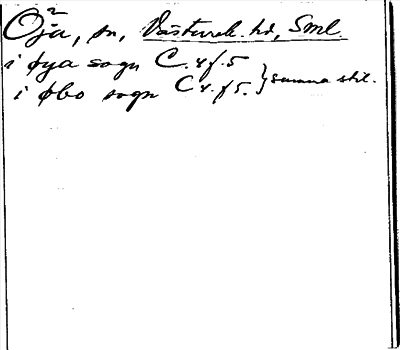 Öja, sn, Västurek. hd, Sml.
i øya sogn C. 4 f. 5
i øbo sogn C 4. f 5. } samma stil.